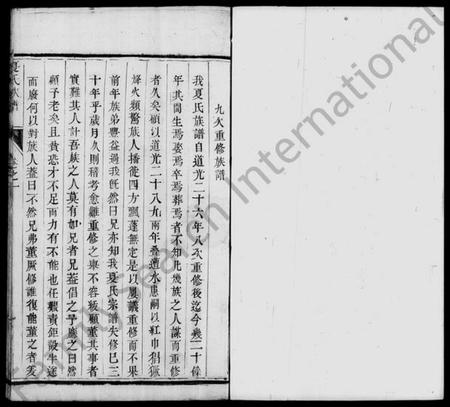 九次重修族譜
我夏氏族譜自道光二十六年八次重修後迄今幾二十餘
年其間生焉娶焉卒焉葬焉者不知凡幾族之人謀而重修
者久矣頓以道光二十八九兩年叠遭水患嗣以紅巾倡亂
烽火頻驚族人播徙四方飄蓬無定是以屢議重修而不果
前年族弟豐益過我旣然曰兄亦知我夏氏宗譜失修已三
十年乎歲月久則稽考愈難重修之舉不容緩顧董其事者
實難其人計吾族之人莫有如兄者兄盍倡之予應之曰然
顧予老矣且貲恐才不足而力有不能也任艱責鉅設半途
而廢何以對族人益曰不然兄弗董厥修誰復能董之者爰
夏氏族譜
卷之一
FamilySearch International